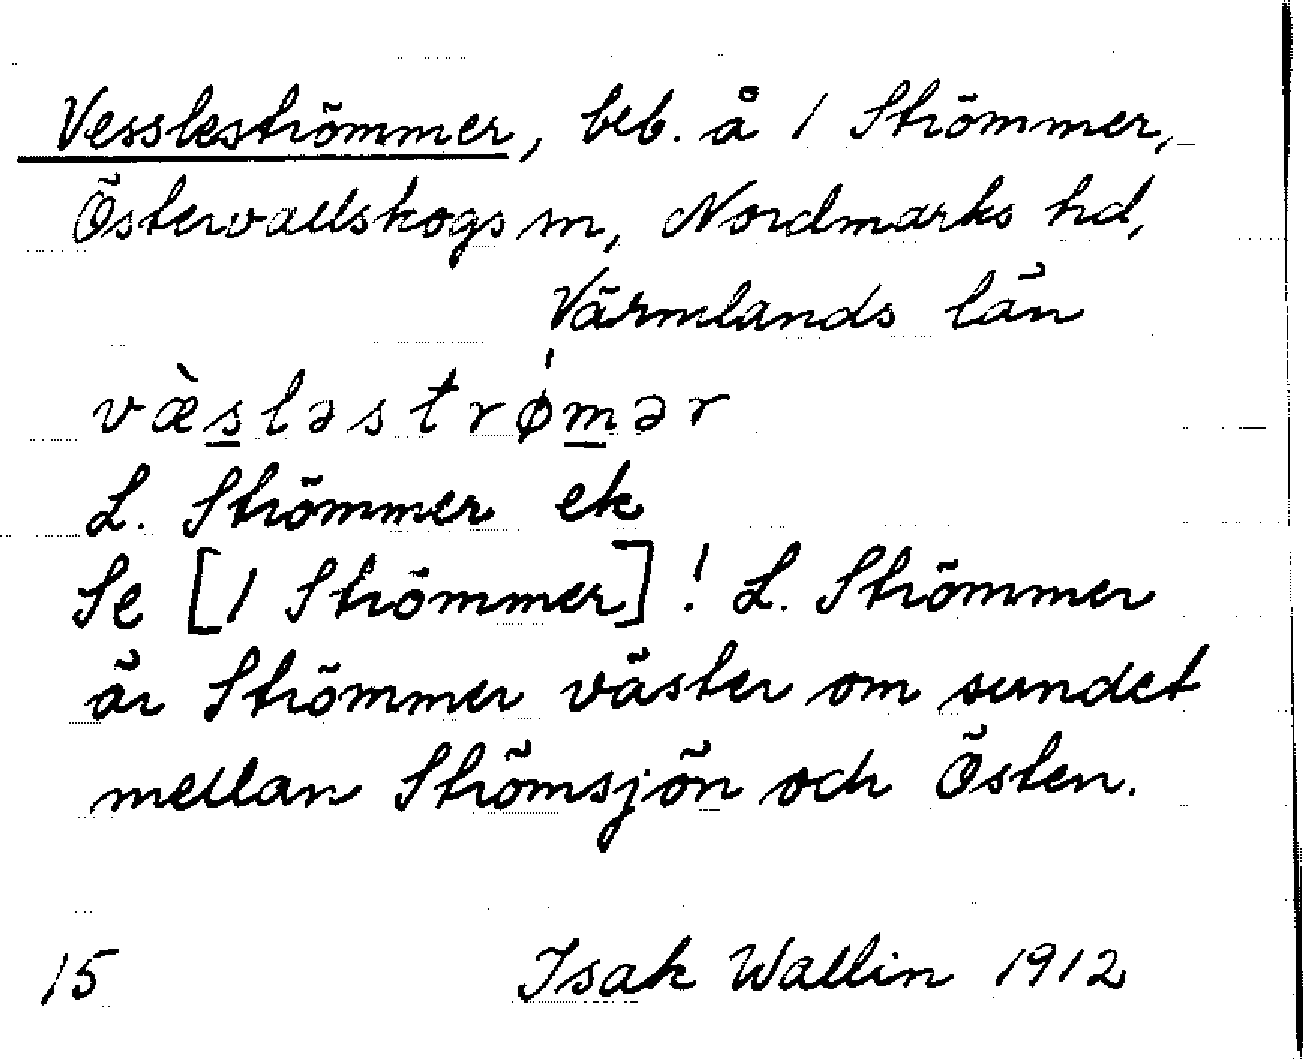 Vessleströmmer, beb. å 1 Strömmer,
Östervallskogs sn, Nordmarks hd,
Värmlands län
væ̀s̲ləstrǿm̲ər
L. Strömmer ek
Se [1 Strömmer]! L. Strömmer
är Strömmer väster om sundet
mellan Strömsjön och Östen.
15 Isak Wallin 1912